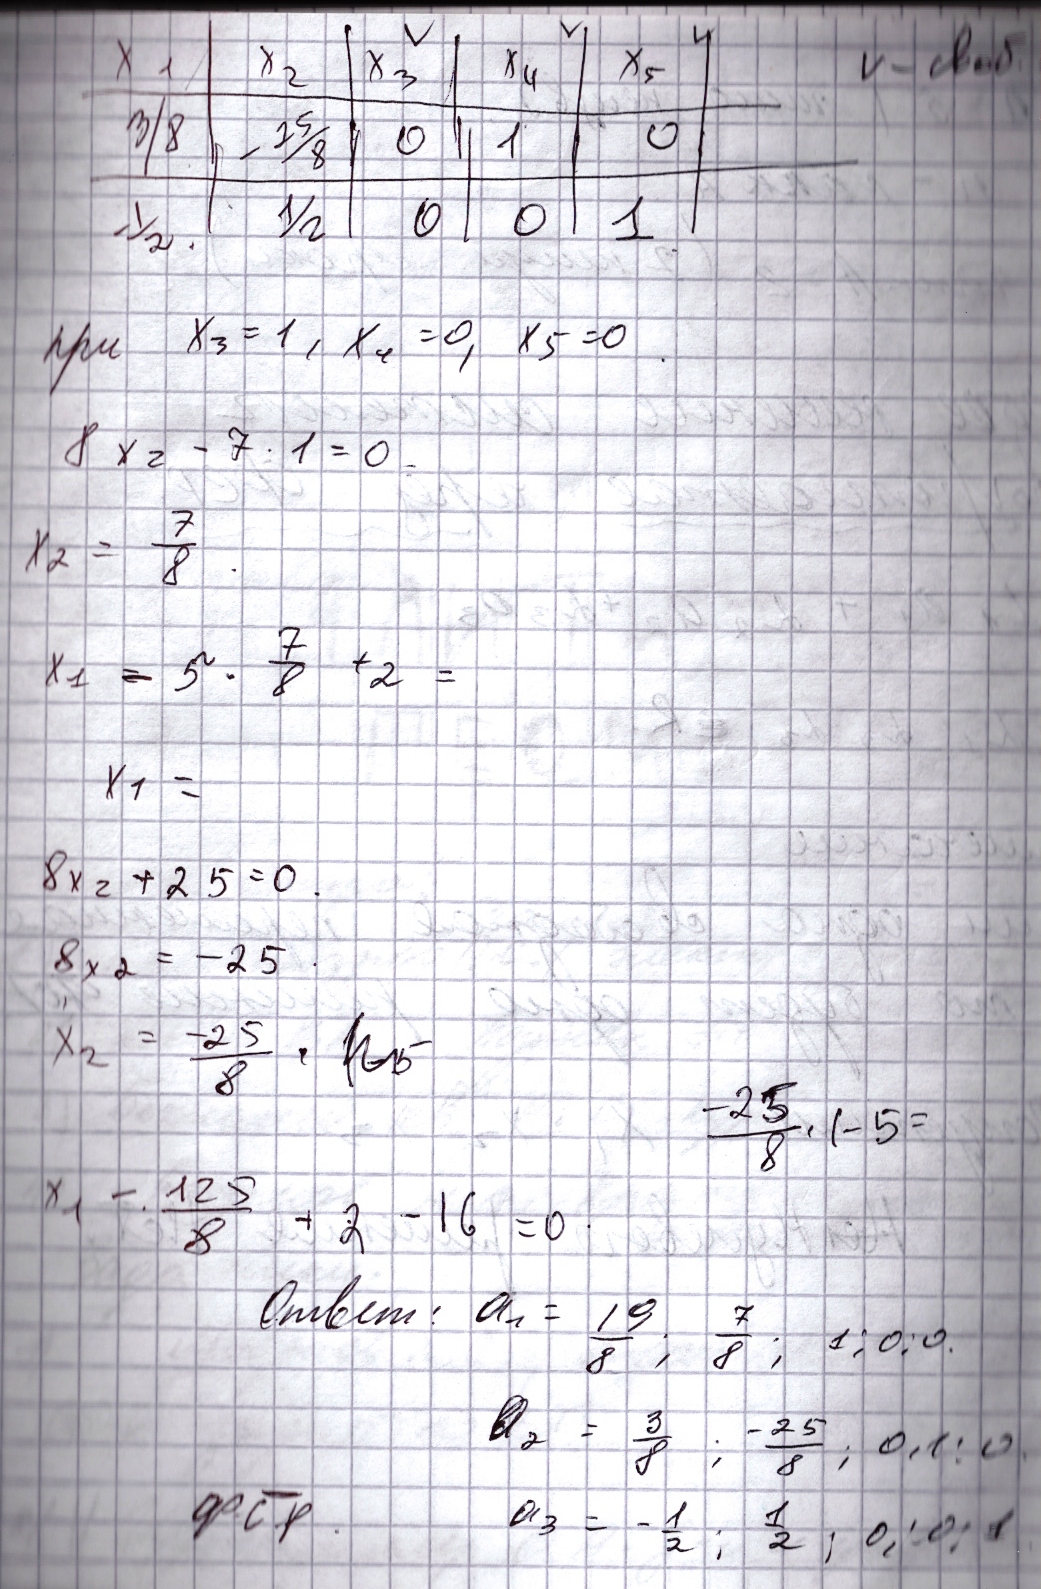 x1 | x2 | x3 v | x4 v | x5 v v – своб.
3/8 | -25/8 | 0 | 1 | 0
-1/2. | 1/2 | 0 | 0 | 1
при x3=1, x4=0, x5=0.
8x2 - 7·1=0.
x2 = 7/8.
x1 = 5 · 7/8 + 2 =
x1 =
8x2 + 25 = 0.
8x2 = -25.
x2 = -25/8 ·
-25/8 · (-5 =
x1 - 125/8 + 2 - 16 = 0.
Ответ: a1 = 19/8; 7/8; 1; 0; 0.
a2 = 3/8; -25/8; 0, 1; 0.
фСР. a3 = -1/2; 1/2; 0; 0; 1